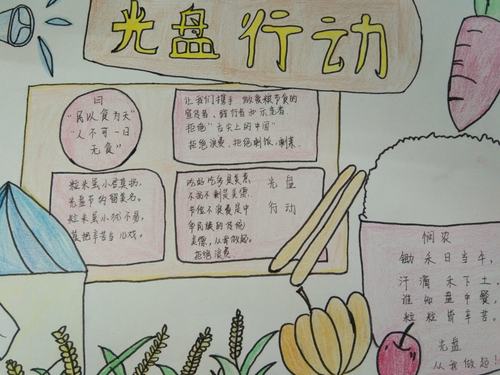 光盘行动
曰
"民以食为天"
"人不可一日
无食"
让我们携手 做我粮节食的
宣传者、践行者、示范者
拒绝"舌尖上的中国"
拒绝浪费、拒绝剩饭、剩菜
粒米虽小尝真物,
光盘节约留美名。
粒米虽小犹不易,
莫把辛苦当儿戏。
吃好吃多真美素,
不而不剩是美德,
节俭不浪费是中
华民族的传统
美德,从我做起。
拒绝浪费
光盘
行动
悯农
锄禾日当午,
汗滴禾下土。
谁知盘中餐
粒粒皆辛苦。
光盘
从我做起!